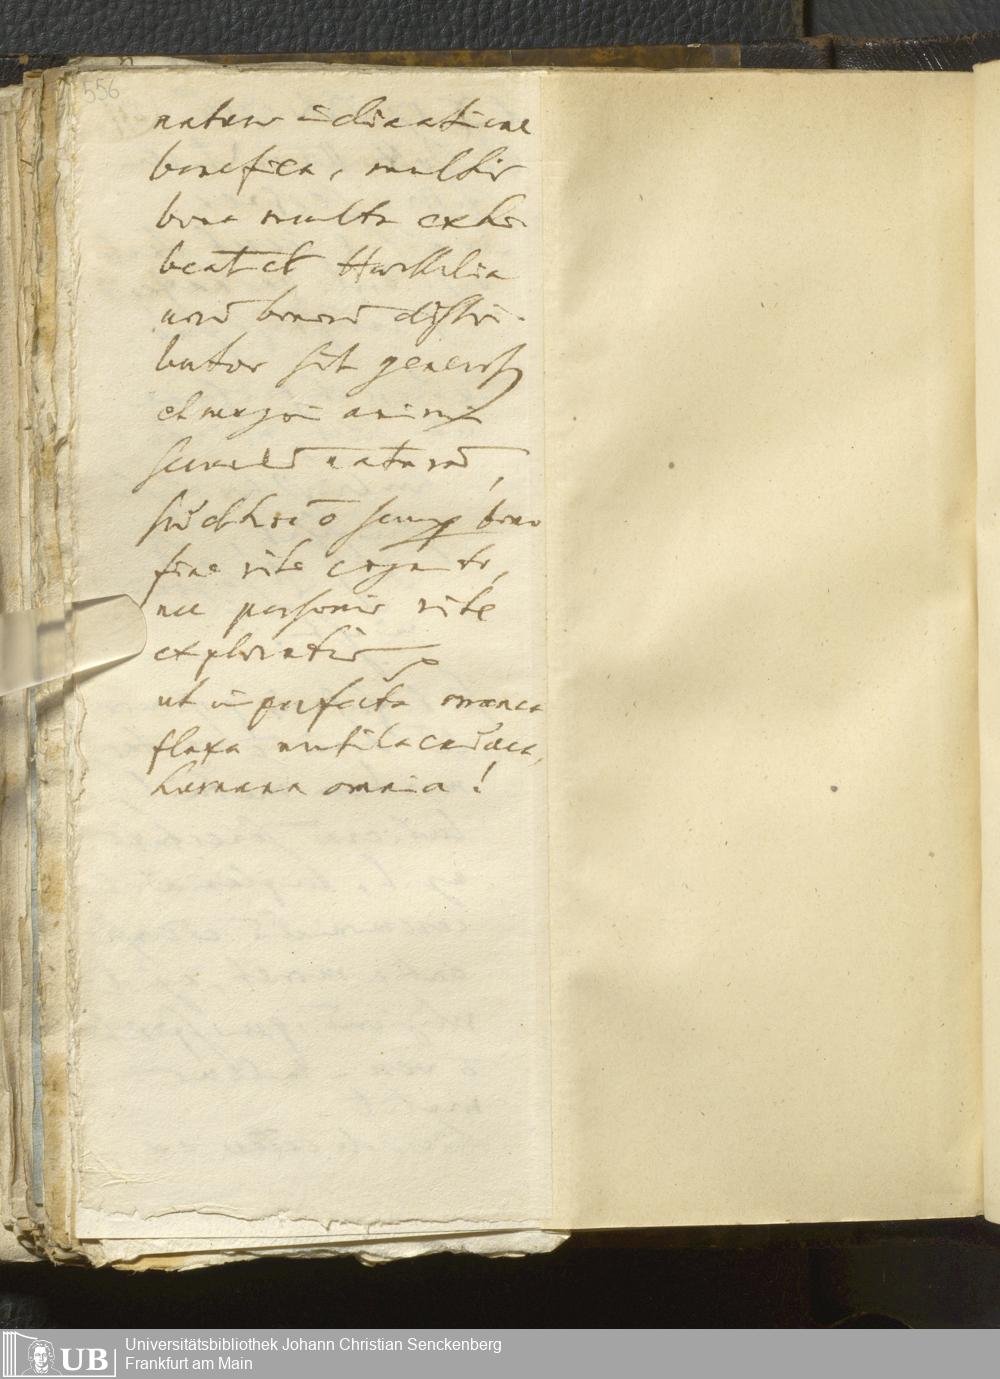 556
naturae inclinatione
benefica, multis
bona multa exhi-
beat et
bonorū distri-
butor sit generosq
et magni animi
secundū naturā,
sed hoc ō semp bono
fine rite cognito,
nec personis rite
exploratis
ut imperfecta manca
flaxa mutila caduca,
humana omnia!
UB
Universitätsbibliothek Johann Christian Senckenberg
Frankfurt am Main